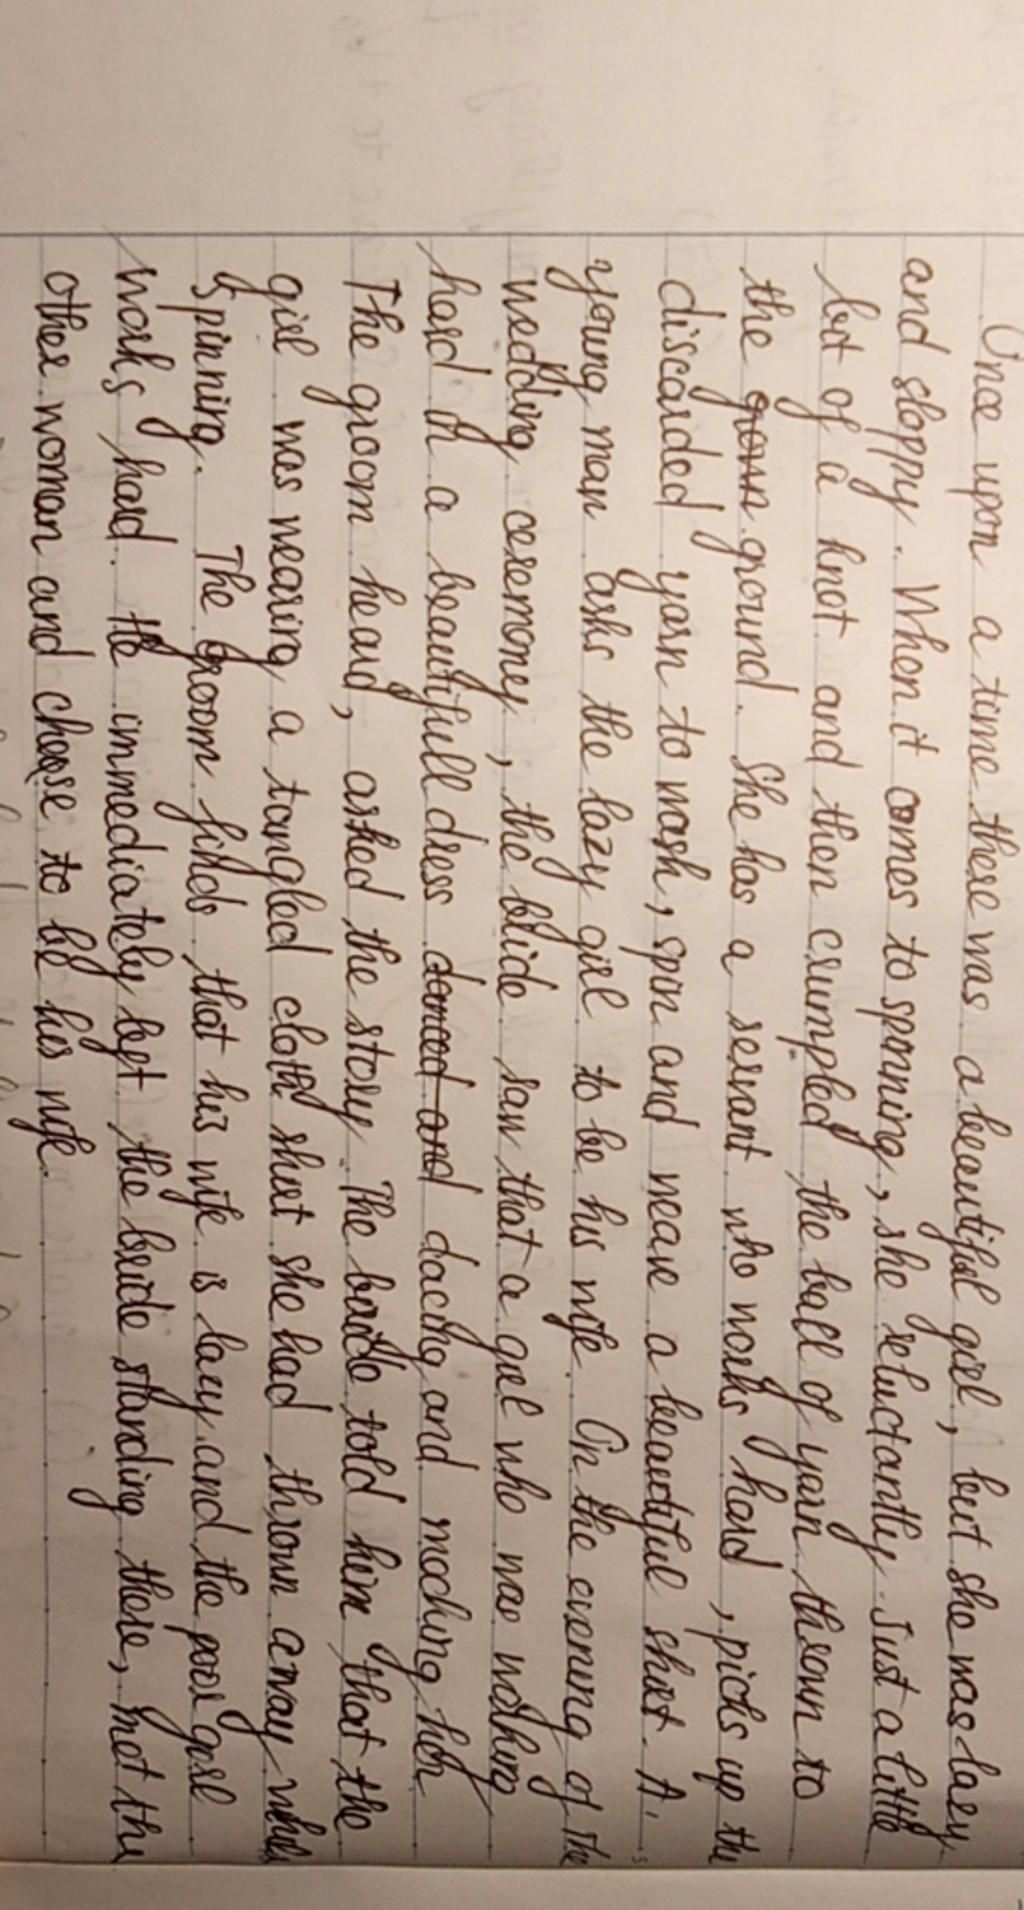 Once upon a time there was a beautiful girl, but she was lazy
and sloppy. When it comes to spinning, she reluctantly. Just a little
bit of a knot and then crumpled the ball of yarn thrown to
the grown ground. She has a servant who works hard, picks up the
discarded yarn to wash, spin and weave a beautiful shirt. A
young man asks the lazy girl to be his wife. On the evening of the
wedding ceremony, the bride saw that a girl who was working
hard in a beautifull dress danced and dacing and mocking her
The groom heard, asked the story. The bride told him that the
girl was wearing a tangled cloth shirt she had thrown away when
spinning. The groom finds that his wife is lazy and the poor girl
works hard. He immediately left the bride standing there, met the
other woman and choose to be his wife.